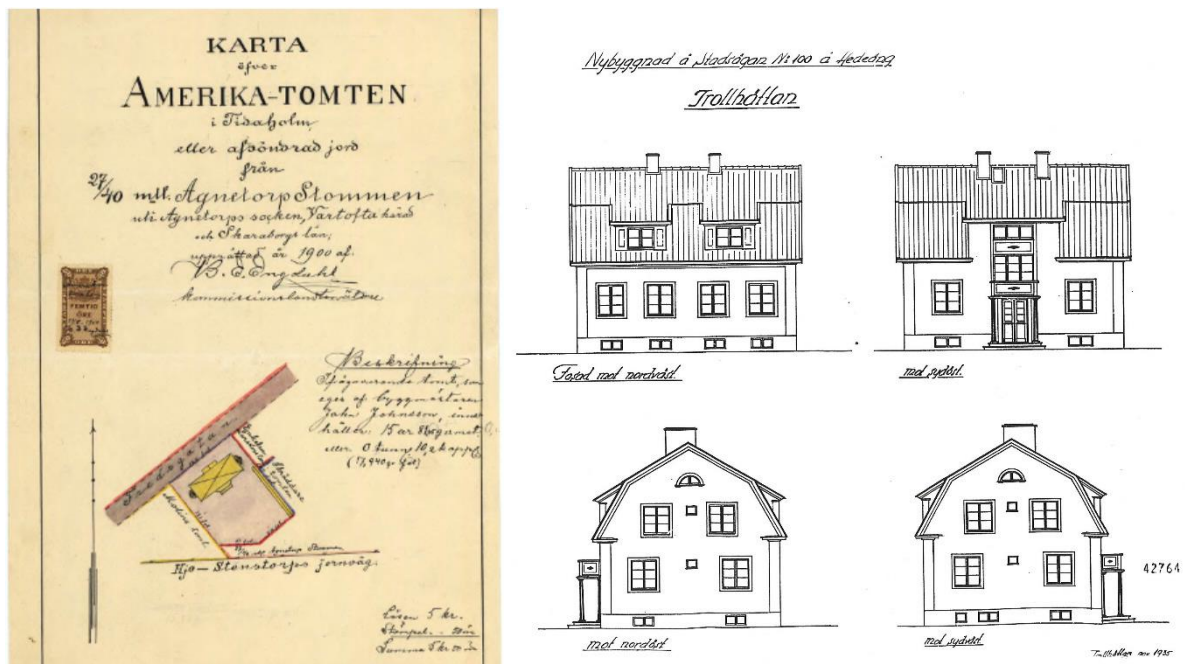 KARTA
öfver
AMERIKA-TOMTEN
i Tidaholm
eller afsöndrad jord
från
27/40 mtl. Agnetorp Stommen
uti Agnetorps socken, Vartofta härad
och Skaraborgs län;
upprättad år 1900 af
B. E. Engdahl
kommissionslantmätare
FEMTIO
ÖRE
Beskrifning
tomt, som
eges af byggmästaren
John Johnsson, inne-
håller 15 ar
eller 0 tunnl 10,2 kappl.
Fredsgatan
Molins tomt
Agnetorp Stommen
Hjo-Stenstorps jernväg.
Lösen 5 kr.
Stämpel
Summa 5 kr
Nybyggnad å Stadsägan No 100 å Hedeäng
Trollhättan
Fasad mot nordväst.
mot sydöst.
mot nordöst
mot sydväst.
42764
Trollhättan nov. 1935